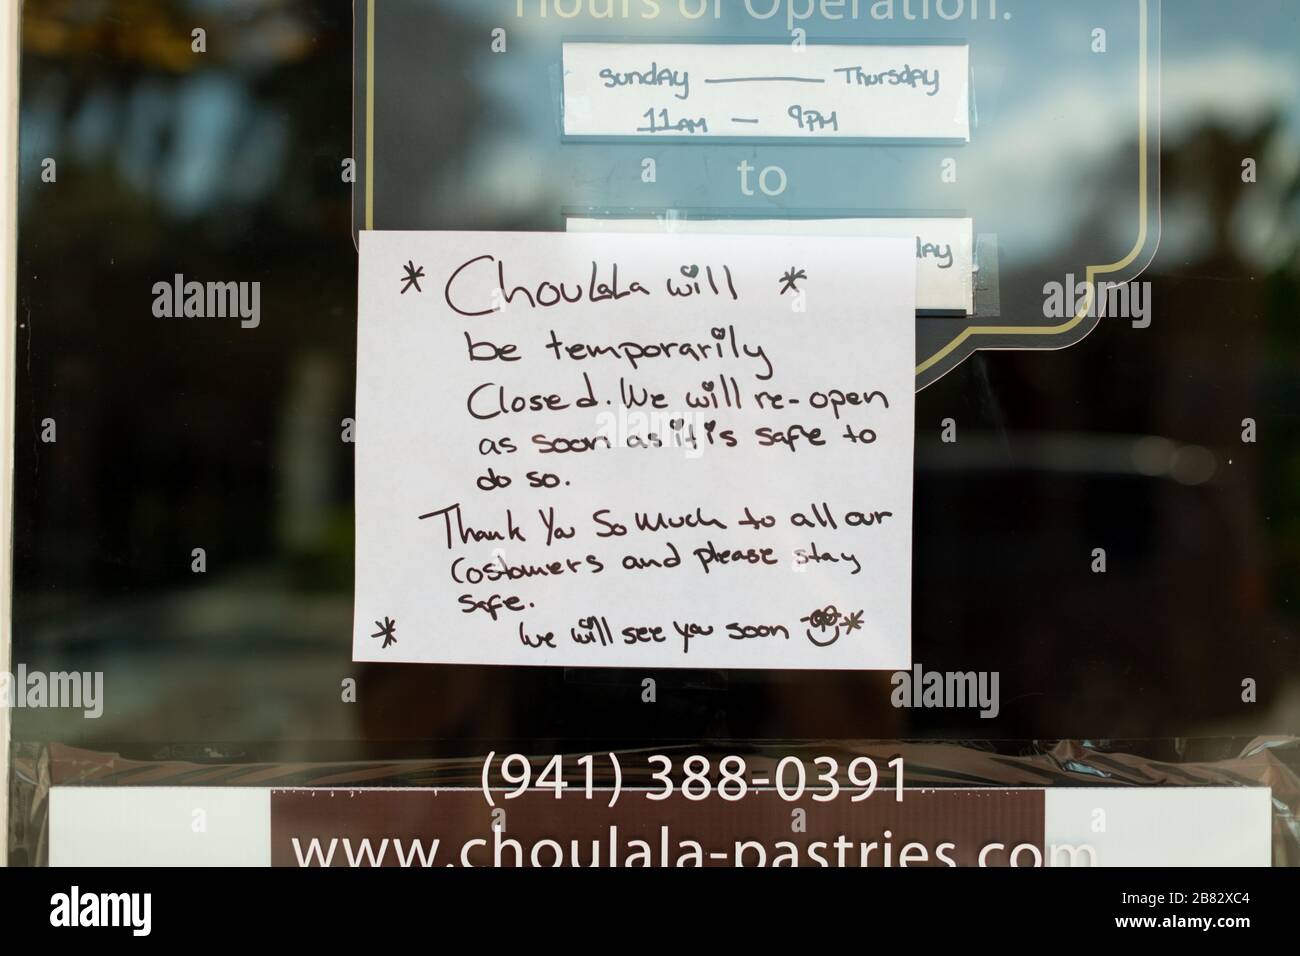 Hours of Operation:
Sunday Thursday
11AM - 9PM
to
day
* Choulala will *
be temporarily
Closed. We will re-open
as soon as it is safe to
do so.
Thank You So Much to all our
Costumers and please stay
safe.
* We will see you soon *
(941) 388-0391
www.choulala-pastries.com
alamy
Image ID: 2B82XC4
www.alamy.com